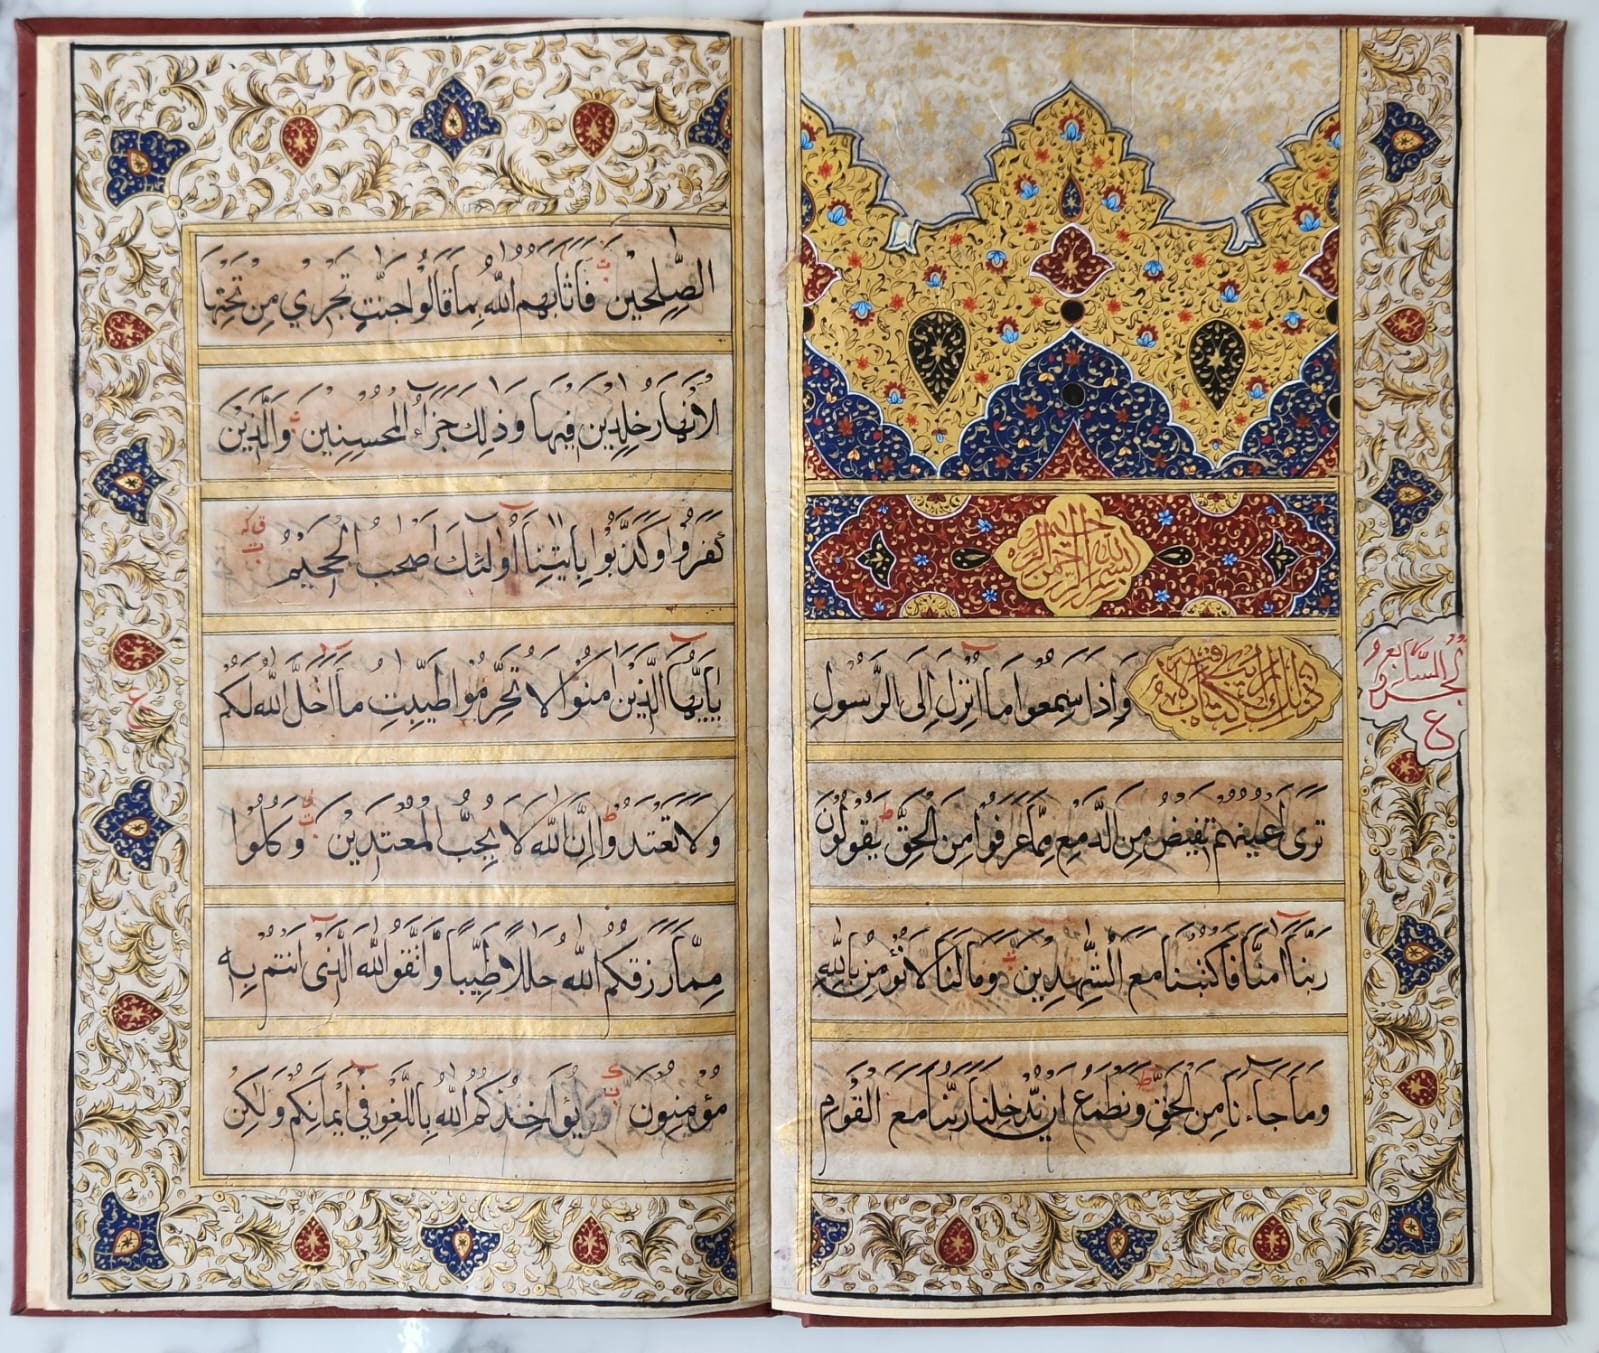 بسم الله الرحمن الرحيم
ذلك الكتاب لا ريب فيه وَاِذَا سَمِعُوا مَا اُنْزِلَ اِلَى الرَّسُولِ
تَرَى اَعْيُنَهُمْ تَفِيضُ مِنَ الدَّمْعِ مِمَّا عَرَفُوا مِنَ الْحَقِّ ط يَقُولُونَ
رَبَّنَا اٰمَنَّا فَاكْتُبْنَا مَعَ الشّٰهِدِينَ وَمَا لَنَا لَا نُؤْمِنُ بِاللّٰهِ
وَمَا جَاءَنَا مِنَ الْحَقِّ وَنَطْمَعُ اَنْ يُدْخِلَنَا رَبُّنَا مَعَ الْقَوْمِ
ع
الصّٰلِحِينَ فَاَثَابَهُمُ اللّٰهُ بِمَا قَالُوا جَنّٰتٍ تَجْرِي مِنْ تَحْتِهَا
الْاَنْهَارُ خٰلِدِينَ فِيهَا وَذٰلِكَ جَزَاءُ الْمُحْسِنِينَ وَالَّذِينَ
كَفَرُوا وَكَذَّبُوا بِاٰيٰتِنَا اُولٰئِكَ اَصْحٰبُ الْجَحِيمِ
يٰاَيُّهَا الَّذِينَ اٰمَنُوا لَا تُحَرِّمُوا طَيِّبٰتِ مَا اَحَلَّ اللّٰهُ لَكُمْ
ع
وَلَا تَعْتَدُوا ط اِنَّ اللّٰهَ لَا يُحِبُّ الْمُعْتَدِينَ وَكُلُوا
مِمَّا رَزَقَكُمُ اللّٰهُ حَلٰلًا طَيِّبًا وَاتَّقُوا اللّٰهَ الَّذِي اَنْتُمْ بِهِ
مُؤْمِنُونَ لَا يُؤَاخِذُكُمُ اللّٰهُ بِاللَّغْوِ فِي اَيْمَانِكُمْ وَلٰكِنْ